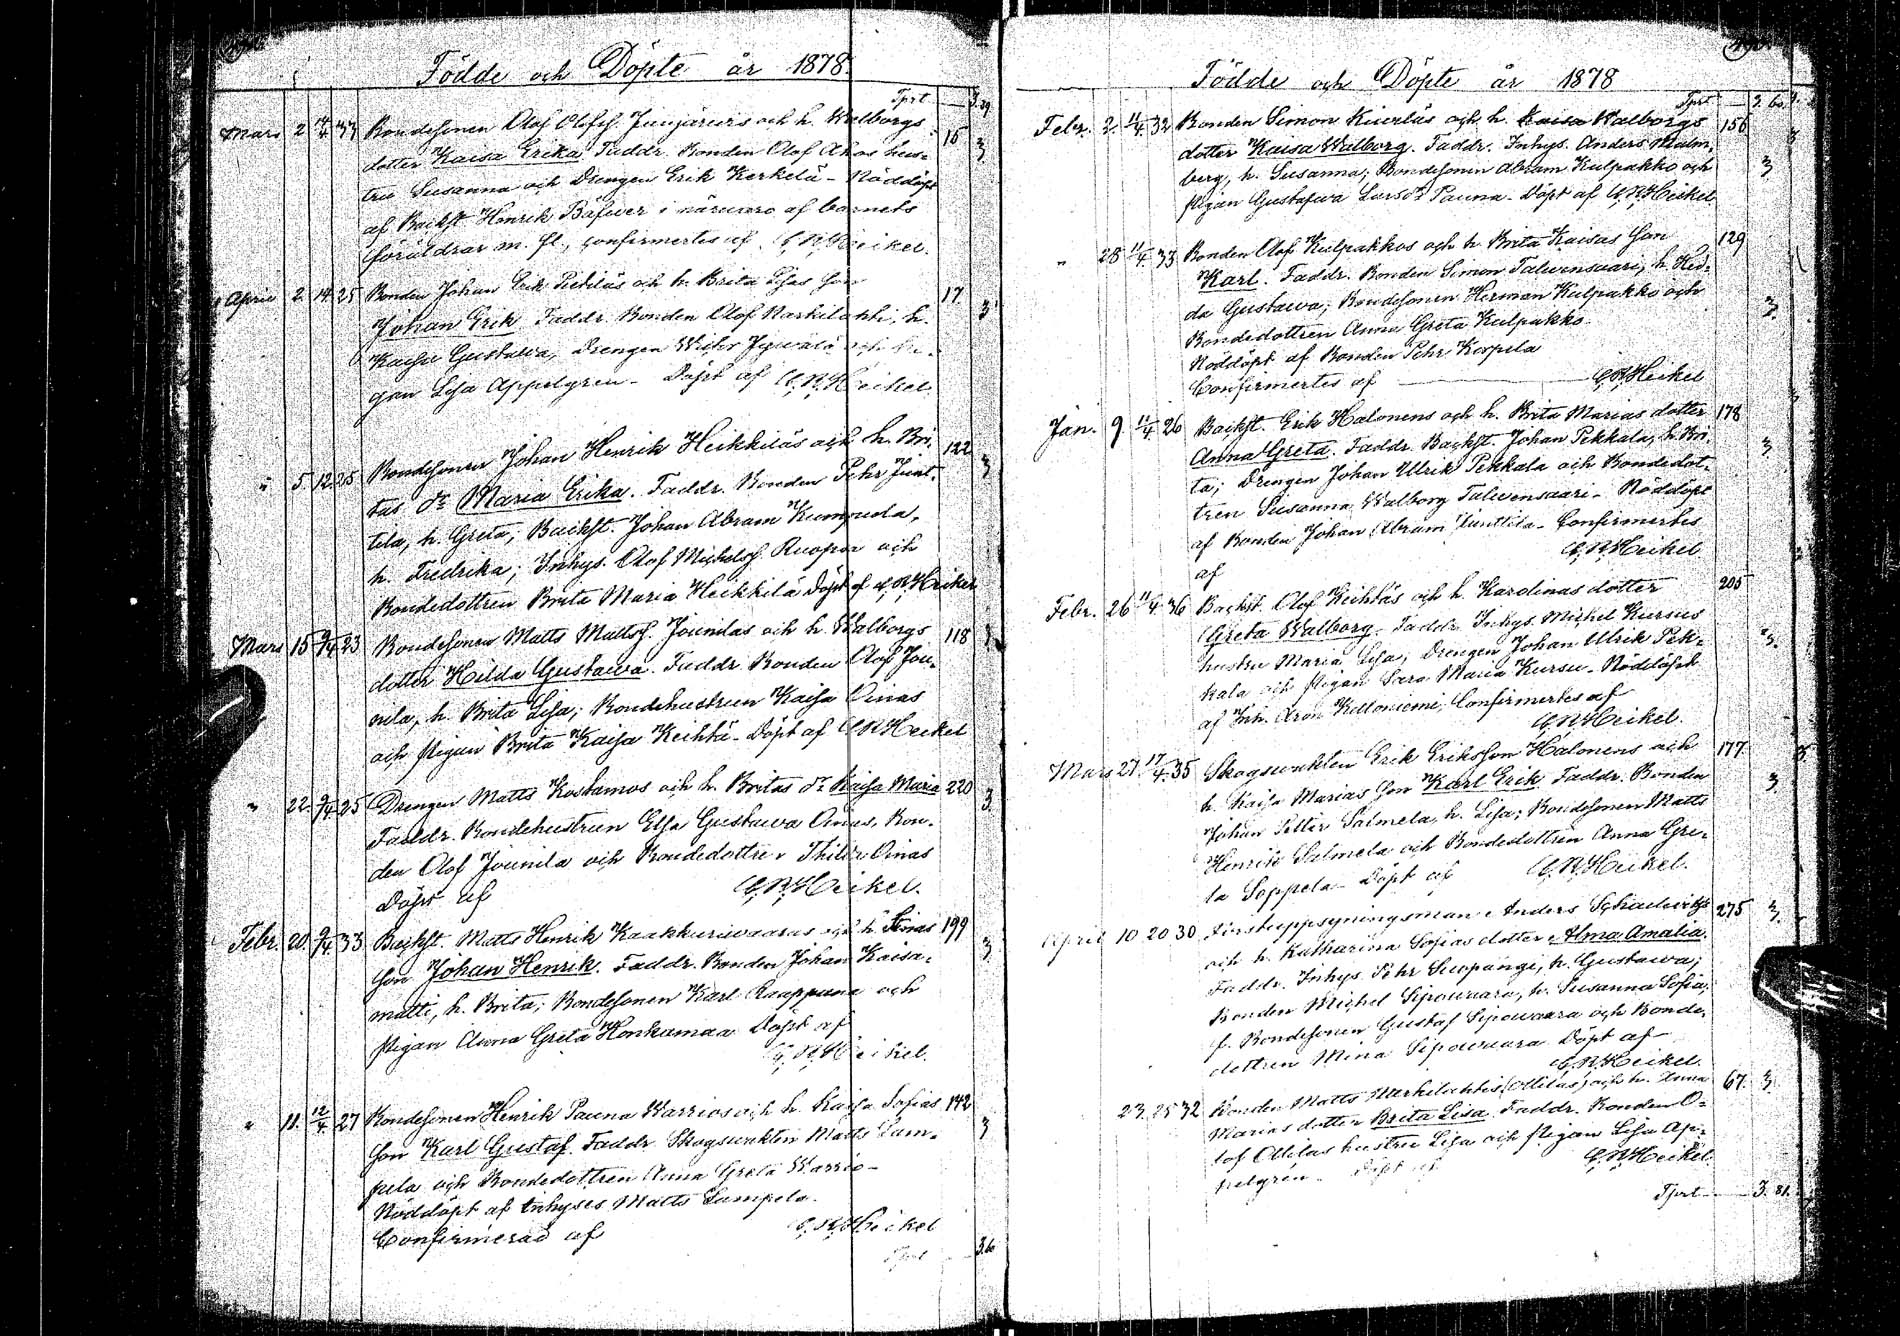 Födde och Döpte år 1878.
Tprt — 3.39
Mars 2 33 Bondesonen Olof Olofss. och h. Walborgs 15
dotter Kaisa Erika. Faddr. Bonden Olof Ahos hus- 3
tru Susanna och Drengen Erik Kerkelä - Nöddöpt
af Backst. Henrik Bäfwer i närwaro af barnets
föräldrar m. fl., confirmertes af C.R.Heikel.
April 2 14 25 Bonden Johan Erik och h. Brita Lisas son 17
Johan Erik. Faddr. Bonden Olof h. 3
Kaisa Gustawa, Drengen och Pi-
gan Lisa Appelgren - Döpt af C.R.Heikel.
" 5. 12 25 Bondesonen Johan Henrik Heikkiläs och h. Bri- 122
tas dr Maria Erika. Faddr. Bonden Pehr Junt- 3
tila, h. Greta; Backst. Johan Abram Kumpula,
h. Fredrika; Inhys. Olof Michelss. Ruopsa och
Bondedottren Brita Maria Heikkilä Döpt af C.R.Heikel
Mars 15 9/4 23 Bondesonen Matts Mattss. Jounilas och h. Walborgs 118
dotter Hilda Gustawa. Faddr. Bonden Olof Jou-
nila, h. Brita Lisa; Bondehustrun Kaisa Oinas
och Pigan Brita Kaisa Keihtä - Döpt af C.R.Heikel
" 22. 9/4 25 Drengen Matts Kostamos och h. Britas dr Kaisa Maria 220 3
Faddr. Bondehustrun Elsa Gustawa Oinas, Bon-
den Olof Jounila och Bondedottren Oinas
Döpt af C.R.Heikel.
Febr. 20. 9/4 33 Backst. Matts Henrik Kaakkuriwaaras och h. Stinas 199
son Johan Henrik. Faddr. Bonden Johan Kaisa- 3
matti, h. Brita; Bondesonen Karl Raappana och
Pigan Anna Greta Honkamaa Döpt af
C.R.Heikel.
" 11. 12/4 27 Bondesonen Henrik Pauna Warrios och h. Kaisa Sofias 142
son Karl Gustaf. Faddr. Skogswakten Matts Lam- 3
pela och Bondedottren Anna Greta Warrio -
Nöddöpt af Inhyses Matts Lampela.
Confirmerad af C.R.Heikel
Tprt — 3.60
Födde och Döpte år 1878
Tprt — 3.60
Febr. 2. 11/4 32 Bonden Simon Kiwiläs och h. Walborgs 156
dotter Kaisa Walborg. Faddr. Inhys. Anders Malm- 3
berg, h. Susanna; Bondesonen Abram Kulpakko och
Pigan Gustafwa Larsdr Pauna - Döpt af C.R.Heikel.
" 28 11/4 33 Bonden Olof Kulpakkos och h. Brita Kaisas son 129
Karl. Faddr. Bonden Simon Talwensaari, h. Hed-
da Gustawa; Bondesonen Herman Kulpakko och 3
Bondedottren Anna Greta Kulpakko.
Nöddöpt af Bonden Pehr Korpela
Confirmertes af — C.R.Heikel
Jan. 9 11/4 26 Backst. Erik Halonens och h. Brita Marias dotter 178
Anna Greta. Faddr. Backst. Johan Pekkala, h. Bri- 3
ta; Drengen Johan Ulrik Pekkala och Bondedot-
tren Susanna Walborg Talwensaari - Nöddöpt
af Bonden Johan Abram Junttila - Confirmertes
af C.R.Heikel
Febr. 26 11/4 36 Backst. Olof Keihtäs och h. Karolinas dotter 205
Greta Walborg. Faddr. Inhys. Michel Kursus
hustru Maria Lisa; Drengen Johan Ulrik Pek- 3
kala och Pigan Sara Maria Kursu - Nöddöpt
af Inh. Aron Kelloniemi; Confirmertes af
C.R.Heikel.
Mars 27. 17/4 35 Skogswakten Erik Eriksson Halonens och 177
h. Kaisa Marias son Karl Erik. Faddr. Bonden 3
Johan Petter Salmela, h. Lisa; Bondesonen Matts
Henrik Salmela och Bondedottren Anna Gre-
ta Soppela - Döpt af C.R.Heikel.
April 10 20 30 Anders 275 3
och h. Katharina Sofias dotter Alma Amalia.
Faddr. Inhys. Pehr Suopangi, h. Gustawa;
Bonden Michel Sipowaara, h. Susanna Sofia;
f. Bondesonen Gustaf Sipowaara och Bonde-
dottren Mina Sipowaara Döpt af
C.R.Heikel.
23 25 32 Bonden Matts (Ollilas) och h. Anna 67. 3
Marias dotter Brita Lisa. Faddr. Bonden O-
lof Ollilas hustru Lisa och Pigan Lisa Ap-
pelgren. Döpt af C.R.Heikel.
Tprt — 3.81.